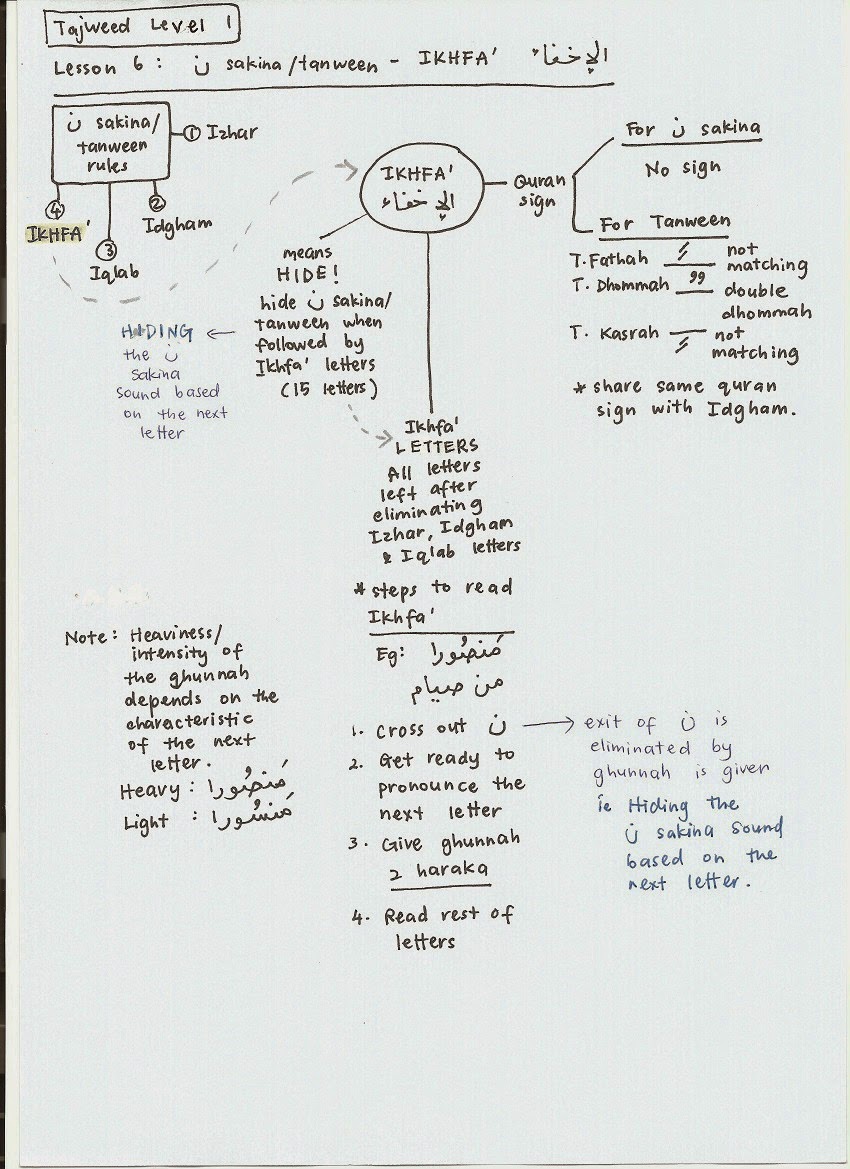 Tajweed Level 1
Lesson 6 : ن sakina/tanween - IKHFA' الإخفاء
ن sakina/
tanween
rules
① Izhar
② Idgham
③ Iqlab
④ IKHFA'
IKHFA'
الإخفاء
Quran
sign
For ن sakina
No sign
For Tanween
T. Fathah not
matching
T. Dhommah double
dhommah
T. Kasrah not
matching
* share same quran
sign with Idgham.
means
HIDE!
hide ن sakina/
tanween when
followed by
Ikhfa' letters
(15 letters)
HIDING
the ن
sakina
sound based
on the next
letter
Ikhfa'
LETTERS
All letters
left after
eliminating
Izhar, Idgham
& Iqlab letters
* steps to read
Ikhfa'
Eg: مَنصُورا
من صيام
1. Cross out ن
2. Get ready to
pronounce the
next letter
3. Give ghunnah
2 haraka
4. Read rest of
letters
exit of ن is
eliminated by
ghunnah is given
ie Hiding the
ن sakina sound
based on the
next letter.
Note: Heaviness/
intensity of
the ghunnah
depends on the
characteristic
of the next
letter.
Heavy : مَنصُورا
Light : مَنشُورا